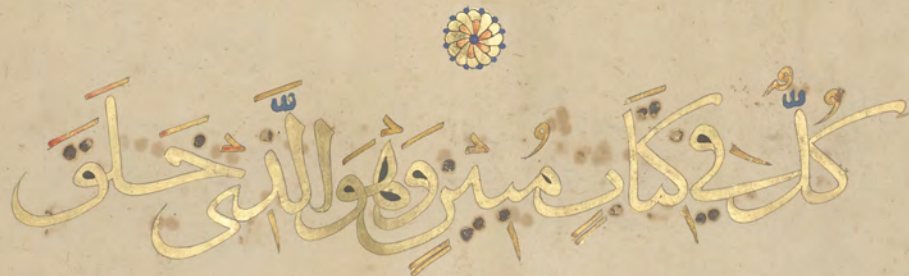 كُلٌّ فِي كِتَابٍ مُبِينٍ وَهُوَ الَّذِي خَلَقَ